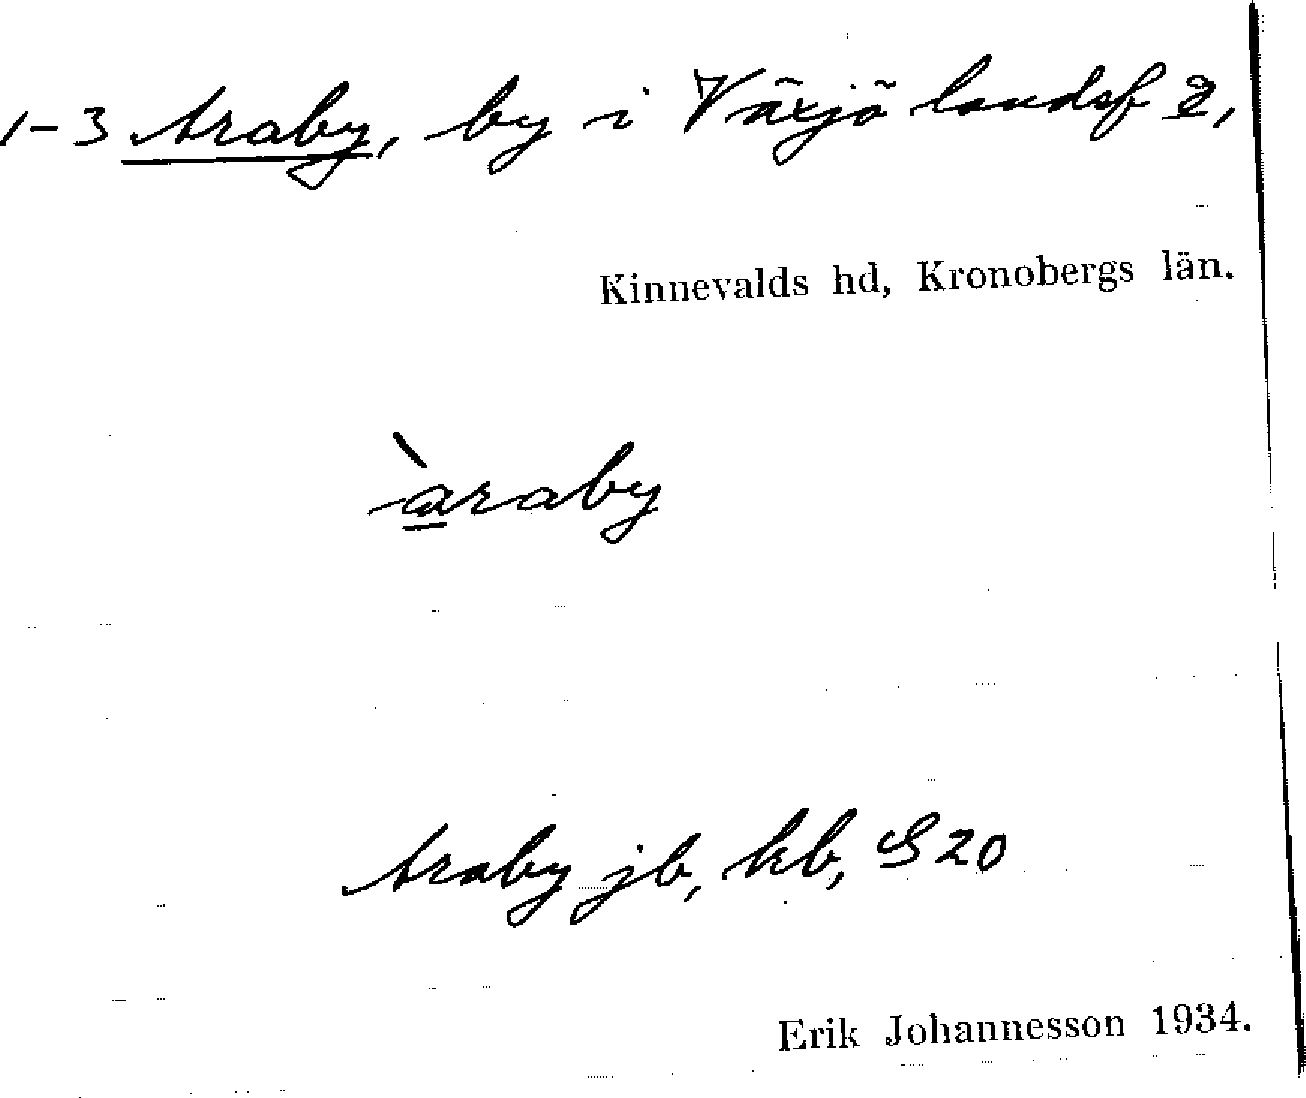 1-3 Araby, by i Växjö landsf 2,
Kinnevalds hd, Kronobergs län.
àraby
Araby jb, kb, S20
Erik Johannesson 1934.